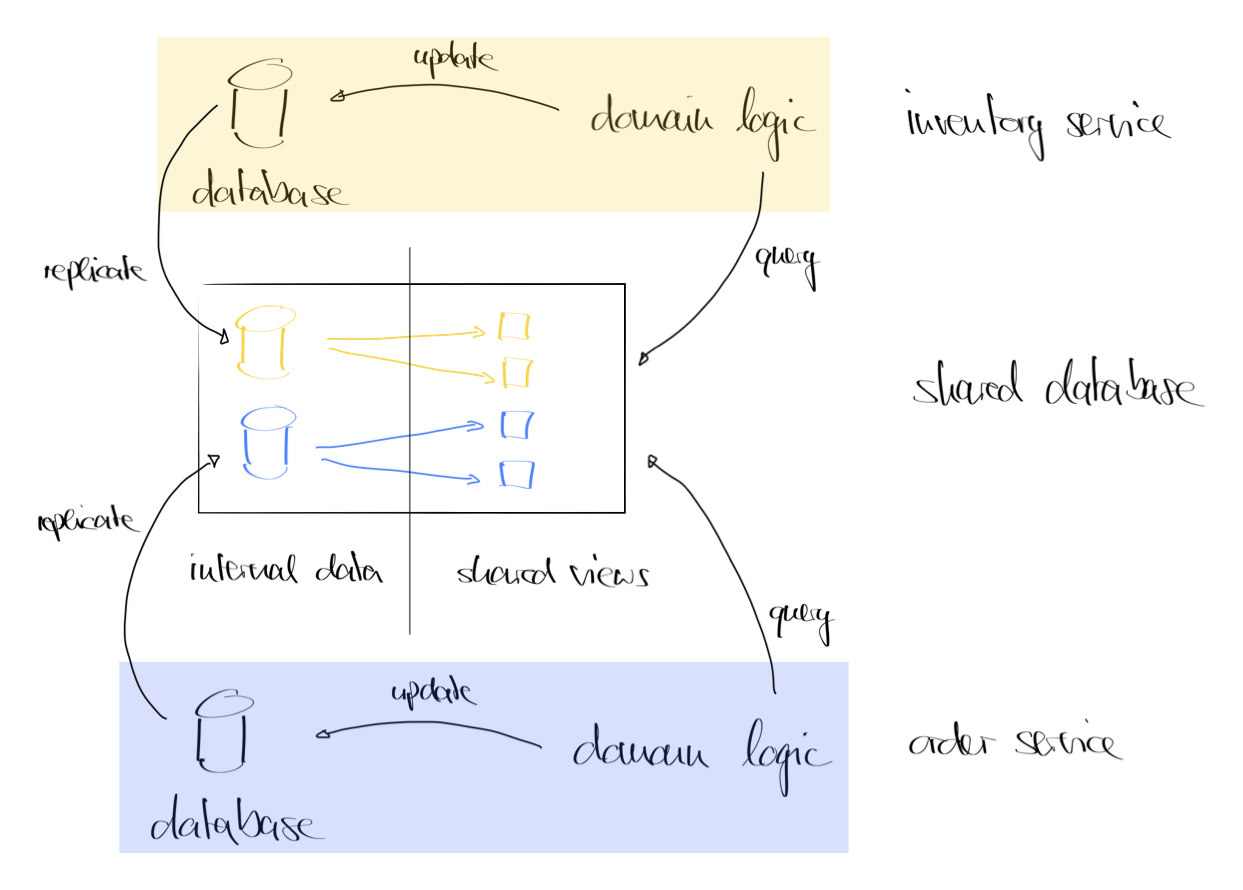 update
domain logic
inventory service
database
replicate
query
shared database
replicate
internal data
shared views
query
update
domain logic
order service
database